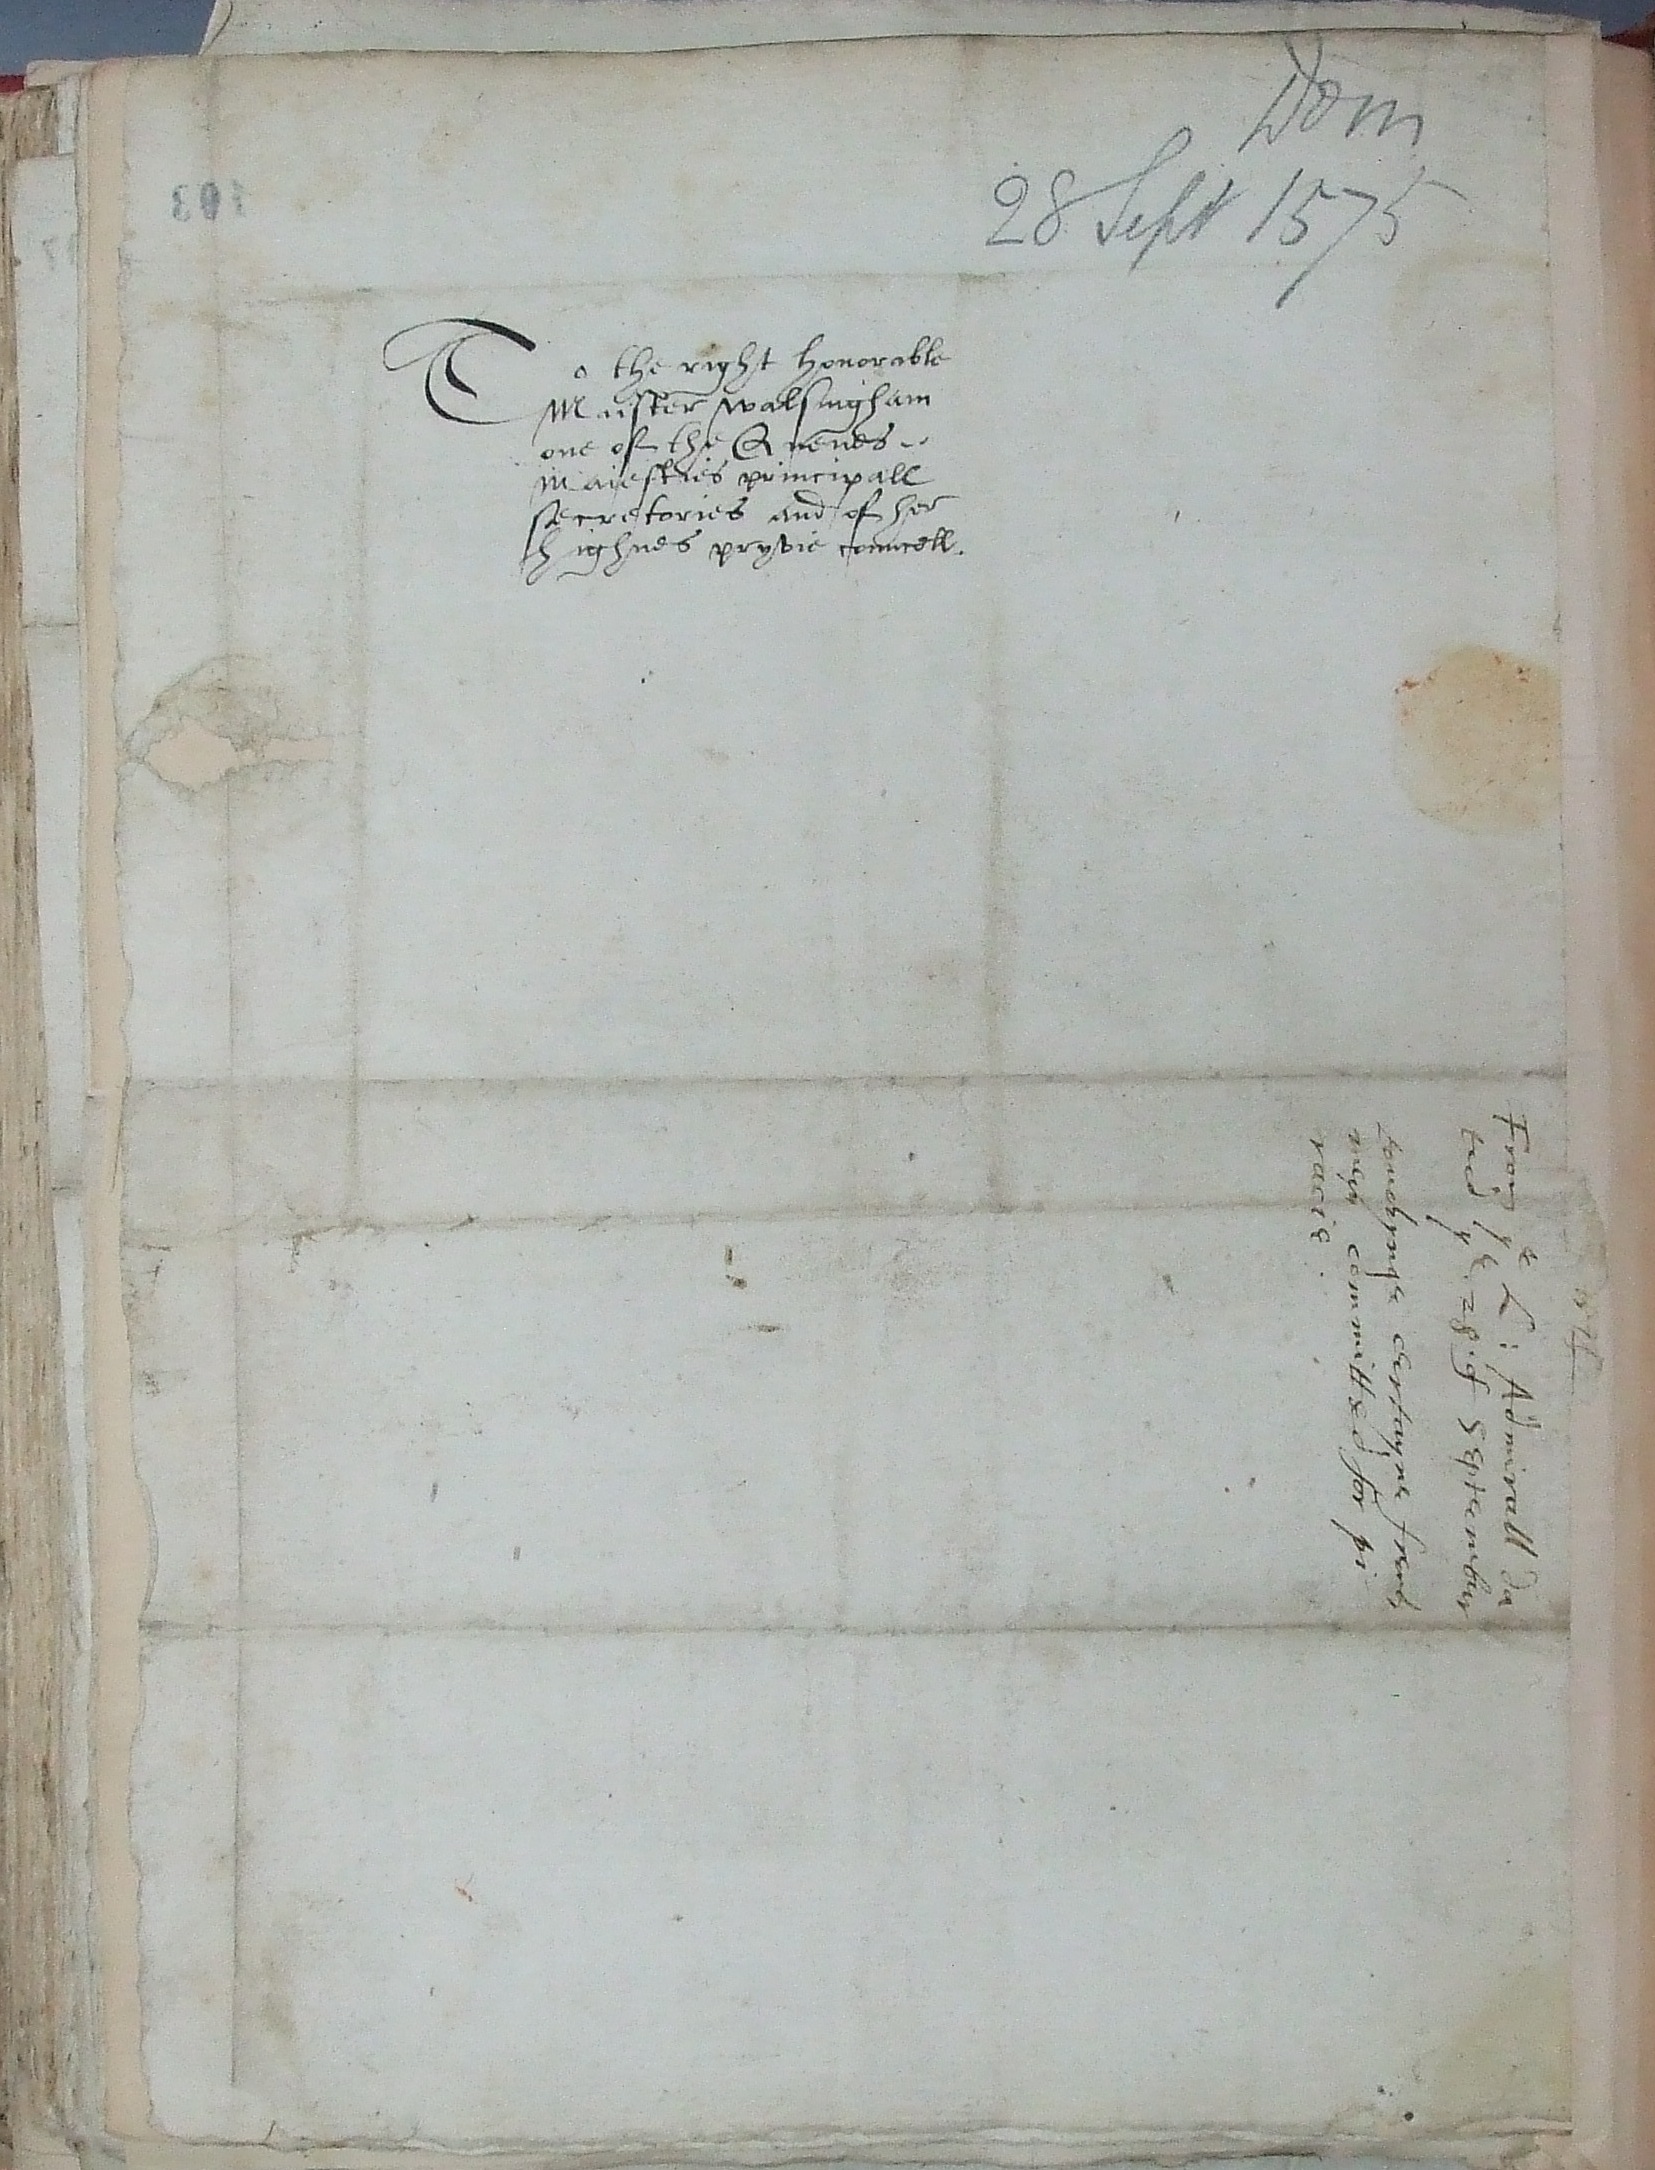 Dom
28 Sept 1575
To the right honorable
Maister Walsingham
one of the Quenes
Maiesties principall
secretories and of her
highnes pryvie councell.
From ye L: Admirall da
ted ye 28. of September
towchynge certayne french
men committed for pi
racie.
103